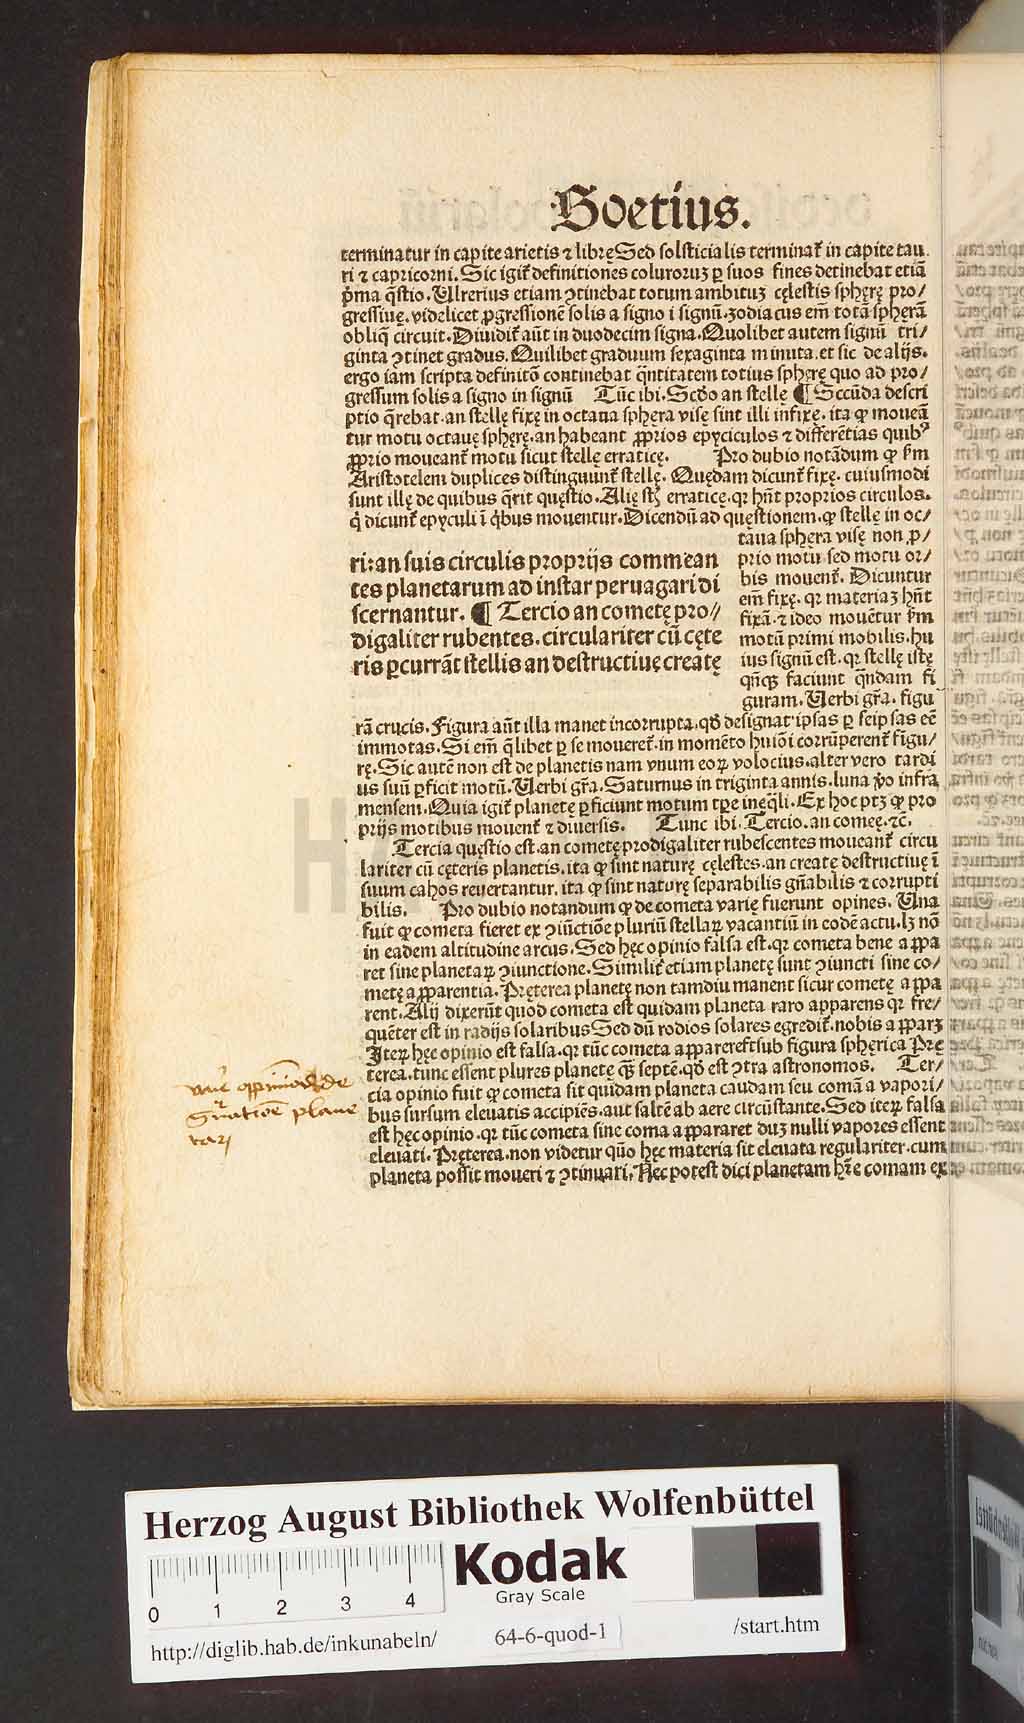 Boetius.
terminatur in capite arietis ⁊ librę Sed solsticialis terminat᷑ in capite tau
ri ⁊ capricorni. Sic igit᷑ definitiones coluroruꝫ ꝑ suos fines detinebat etiā
p̄ma q̄stio. Ulrerius etiam ꝯtinebat totum ambituꝫ cęlestis sphęrę pro/
gressiuę. videlicet ꝓgressionē solis a signo i signū. zodiacus em̄ totā sphęrā
obliq̄ circuit. Diuidit᷑ aūt in duodecim signa. Quolibet autem signū tri/
ginta ꝯtinet gradus. Quilibet graduum sexaginta minuta. et sic de alijs.
ergo iam scripta definitō continebat q̄ntitatem totius sphęrę quo ad pro/
gressum solis a signo in signū Tūc ibi. Scd̄o an stellę ¶ Secūda descri
ptio q̄rebat. an stellę fixę in octaua sphera visę sint illi infixę. ita ꝙ moueā
tur motu octauę sphęrę. an habeant ꝓprios epyciculos ⁊ differētias quibꝰ
ꝓprio moueant᷑ motu sicut stellę erraticę. Pro dubio notādum ꝙ ẜm
Aristotelem duplices distinguunt᷑ stellę. Quędam dicunt᷑ fixę. cuiusmodi
sunt illę de quibus q̄rit quęstio. Alię sūt erraticę. qꝛ hn̄t proprios circulos.
q̇ dicunt᷑ epyculi ī q̇bus mouentur. Dicendū ad quęstionem. ꝙ stellę in oc/
taua sphęra visę non ꝓ/
prio motu sed motu or/
bis mouent᷑. Dicuntur
em̄ fixę. qꝛ materiaꝫ hn̄t
fixā. ⁊ ideo mouētur ẜm
motū primi mobilis. hu
ius signū est. qꝛ stellę istę
qn̄qꝫ faciunt q̄ndam fi
guram. Uerbi gr̄a. figu
ri: an suis circulis proprijs commean
tes planetarum ad instar peruagari di
scernantur. ¶ Tercio an cometę pro//
digaliter rubentes. circulariter cū cęte
ris ꝑcurrāt stellis an destructiuę creatę
rā crucis. Figura aūt illa manet incorrupta. qd̄ designat ipsas ꝑ seipsas eē
immotas. Si em̄ q̄libet ꝑ se moueret᷑. in momēto huiōi corrūperent᷑ figu/
rę. Sic autē non est de planetis nam vnum eoꝝ volocius. alter vero tardi
us suū ꝑficit motū. Uerbi gr̄a. Saturnus in triginta annis. luna ꝟo infra
mensem. Quia igit᷑ planetę ꝑficiunt motum tꝑe inęq̄li. Ex hoc ptꝫ ꝙ pro
prijs motibus mouent᷑ ⁊ diuersis. Tunc ibi. Tercio. an comeę. ⁊c.
Tercia quęstio est. an cometę prodigaliter rubescentes moueant᷑ circu
lariter cū cęteris planetis. ita ꝙ sint naturę cęlestes. an creatę destructiuę ī
suum cahos reuertantur. ita ꝙ sint naturę separabilis gn̄abilis ⁊ corrupti
bilis. Pro dubio notandum ꝙ de cometa varię fuerunt opines. Una
fuit ꝙ cometa fieret ex ꝯiūctiōe pluriū stellaꝝ vacantiū in codē actu. lꝫ nō
in eadem altitudine arcus. Sed hęc opinio falsa est. qꝛ cometa bene appa
ret sine planetaꝝ ꝯiunctione. Similit᷑ etiam planetę sunt ꝯiuncti sine co/
metę apparentia. Pręterea planetę non tamdiu manent sicur cometę appa
rent. Alij dixerūt quod cometa est quidam planeta raro apparens qꝛ fre/
quēter est in radijs solaribus Sed dū rodios solares egredit᷑. nobis apparꝫ
Iteꝝ hęc opinio est falsa. qꝛ tūc cometa appareret sub figura sphęrica Prę
terea. tunc essent plures planetę qꝫ̄ septē. qd̄ est ꝯtra astronomos. Ter/
cia opinio fuit ꝙ cometa sit quidam planeta caudam seu comā a vapori/
bus sursum eleuatis accipiēs. aut saltē ab aere circūstante. Sed iteꝝ falsa
est hęc opinio. qꝛ tūc cometa sine coma appararet duꝫ nulli vapores essent
eleuati. Pręterea. non videtur quō hęc materia sit eleuata regulariter. cum
planeta possit moueri ⁊ ꝯtinuari. Nec potest dici planetam hr̄e comam ex
de
plane
tarꝝ
Herzog August Bibliothek Wolfenbüttel
0 1 2 3 4
Kodak
Gray Scale
http://diglib.hab.de/inkunabeln/ 64-6-quod-1 /start.htm